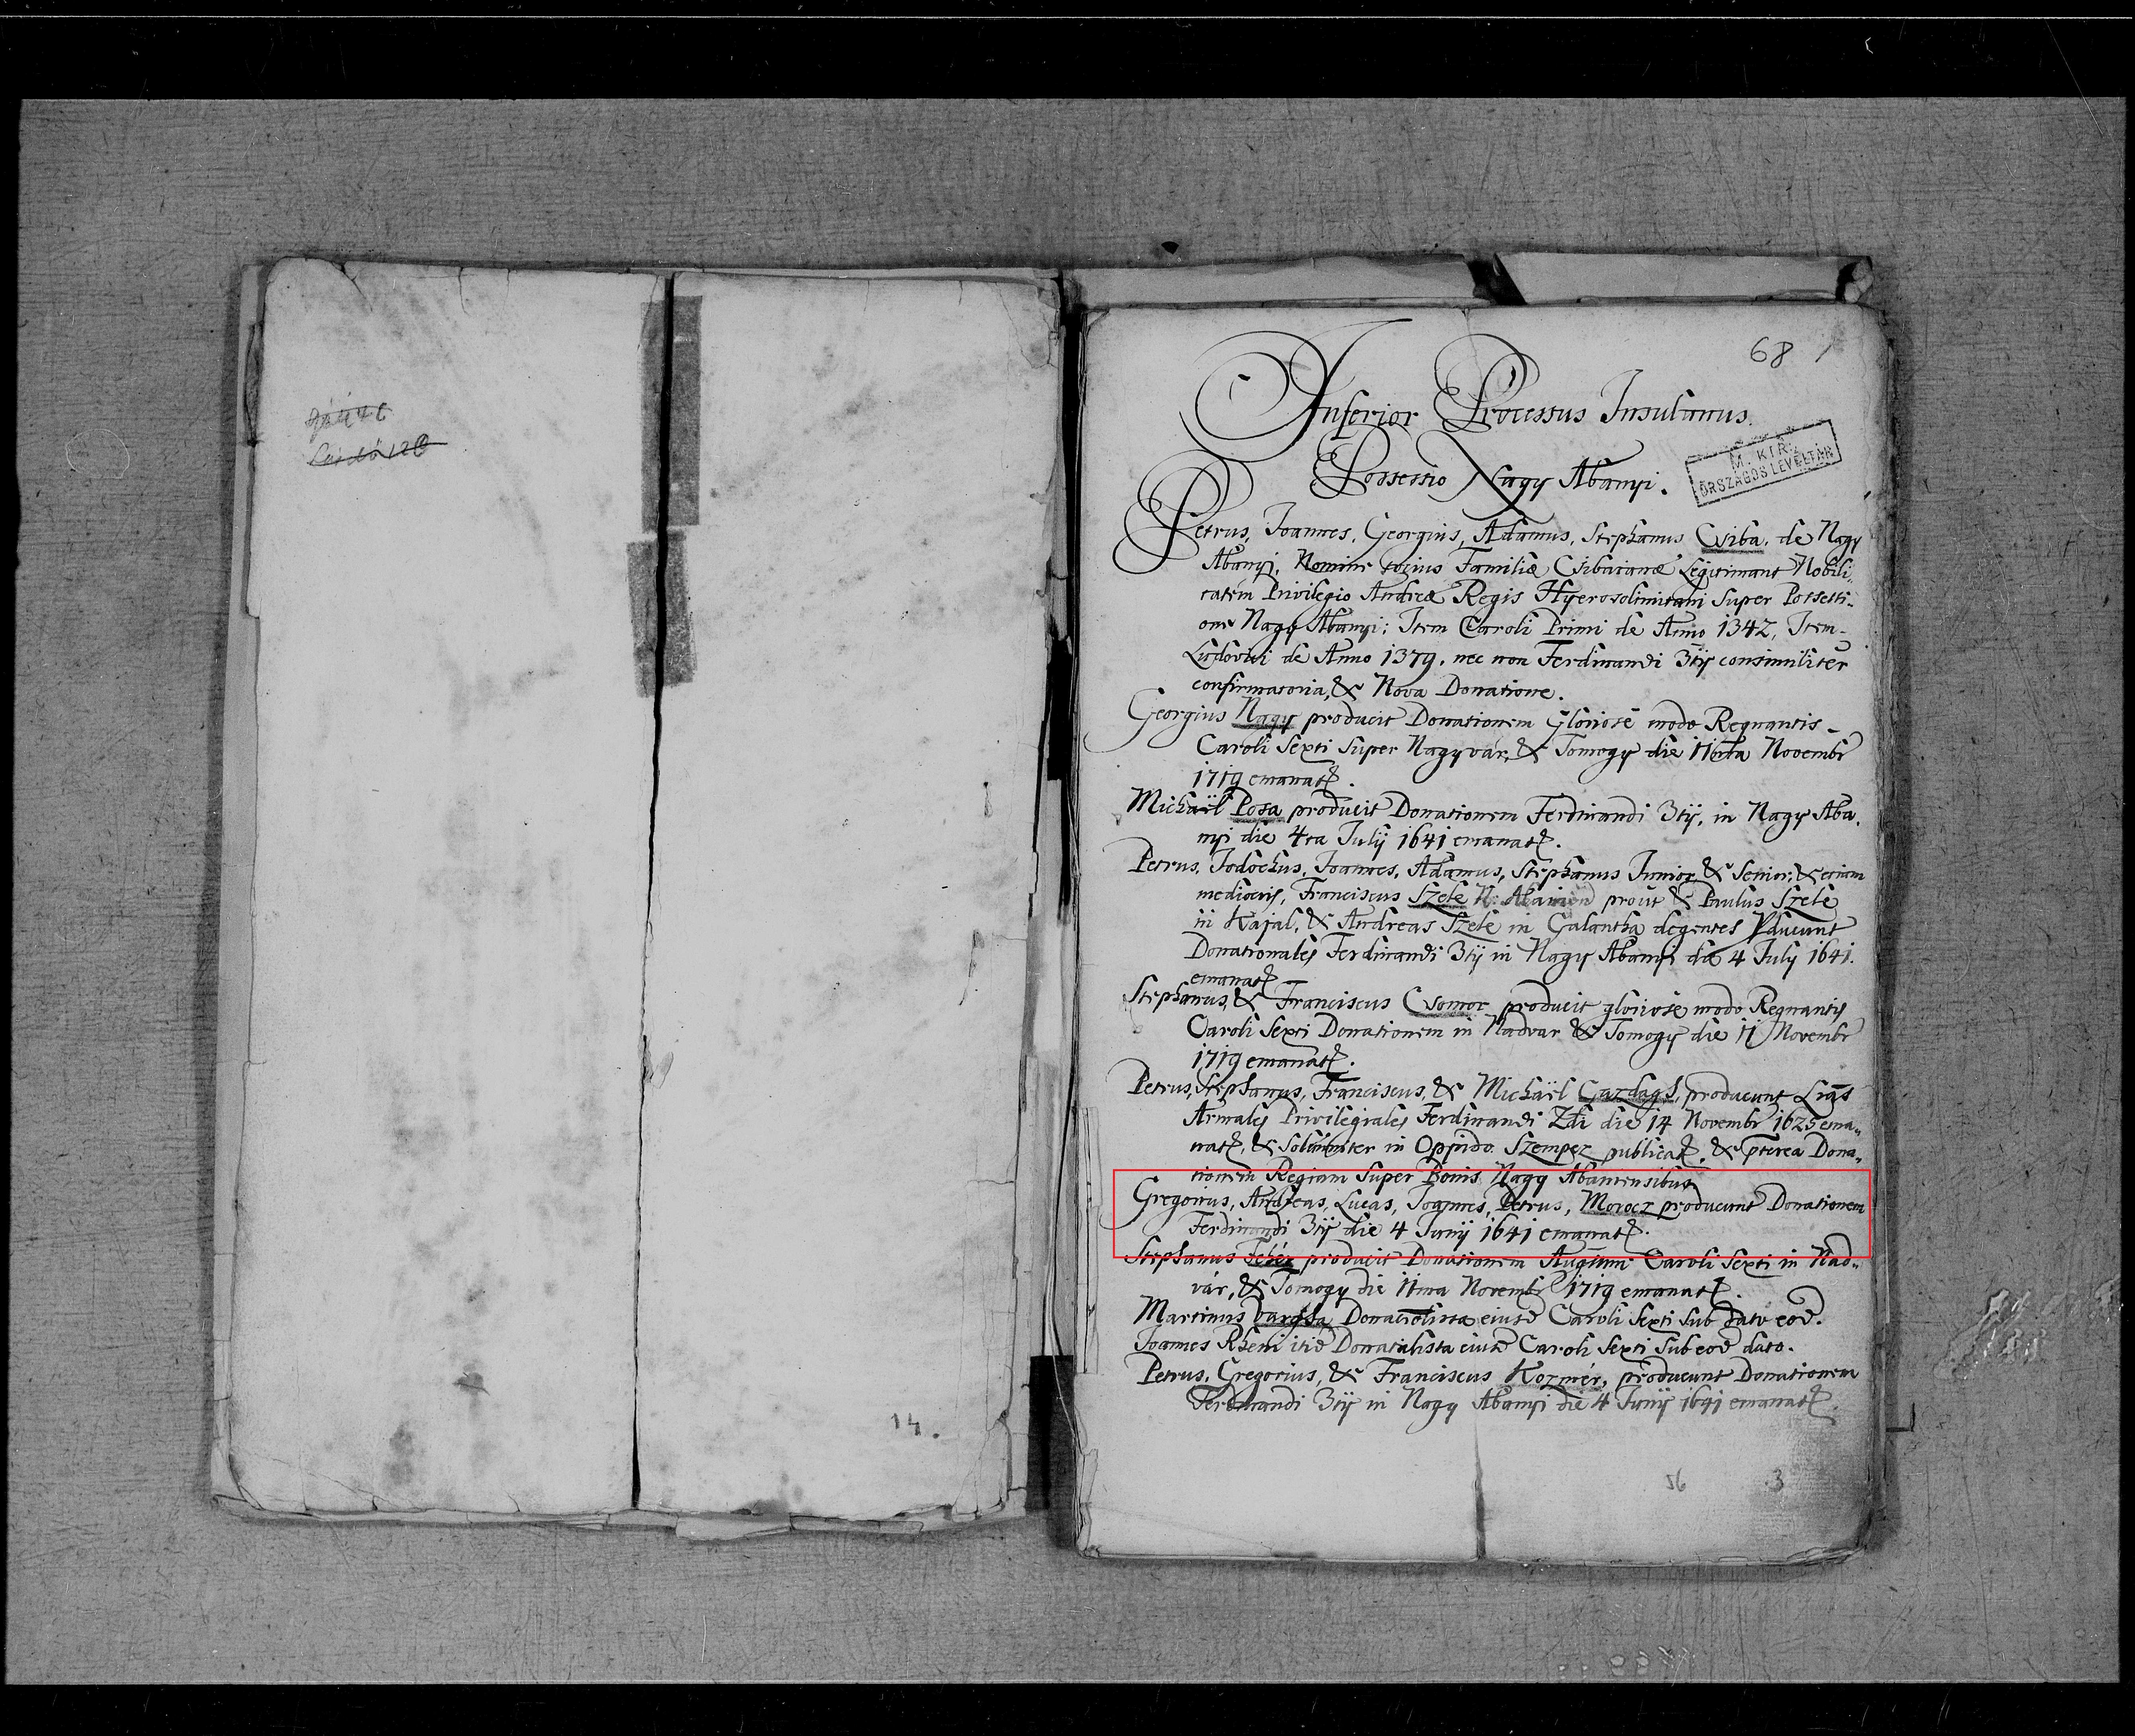 68
Inferior Processus Insulanus.
Possessio Nagy Abanyi.
M. KIR.
ORSZÁGOS LEVÉLTÁR
Petrus, Joannes, Georgius, Adamus, Stephanus Csiba, de Nagy
Abanyi, Nomine totius Familiæ Csibaianæ Legitimant Nobili„
tatem Privilegio Andreæ Regis Hyerosolimitani Super Possessi„
one Nagy Abanyi; Item Caroli Primi de Anno 1342, Item
Ludovici de Anno 1379. nec non Ferdinandi 3tij consimiliter
confirmatoria, & Nova Donatione.
Georgius Nagy producit Donationem Gloriose modo Regnantis
Caroli Sexti Super Nagyvár, & Tomogy die Novembr
1719 emanat.
Michaël Posa producit Donationem Ferdinandi 3tij, in Nagy Aba„
nyi die 4ta Julij 1641 emanat.
Petrus, Jodochus, Joannes, Adamus, Stephanus Junior, & Senior, & etiam
mediocris, Franciscus Szele N. prout & Paulus Szele
in Kajal, & Andreas Szele in Galantha degentes Pducunt
Donationales Ferdinandi 3tij in Nagy Abanyi die 4 July 1641.
emanat
Stephanus, & Franciscus Csomor producit gloriose modo Regnantis
Caroli Sexti Donationem in Nadvar & Tomogy die 11 Novembr
1719 emanat.
Petrus, Stephanus, Franciscus, & Michaël Gazdagh, producunt Lras
Armales Privilegiales Ferdinandi 2di die 14 Novembr 1625 ema„
nat, & Solenniter in Oppido Szempcz publicat, & pterea Dona„
tionem Regiam Super Bonis Nagy Abaniensibus
Gregorius, Andreas, Lucas, Joannes, Petrus, Morocz producunt Donationem
Ferdinandi 3tij die 4 Junij 1641 emanat.
Stephanus Fehér producit Donationem Caroli Sexti in Nad„
vár, & Tomogy die 11ma Novembr 1719 emanat.
Martinus Vargha Donatalista eiusd Caroli Sexti Sub dato eod.
Joannes Rheni itid Donatalista eiusd Caroli Sexti Sub eod dato.
Petrus, Gregorius, & Franciscus Kozmér, producunt Donationem
Ferdinandi 3tij in Nagy Abanyi die 4 Junij 1641 emanat.
14.
56 3